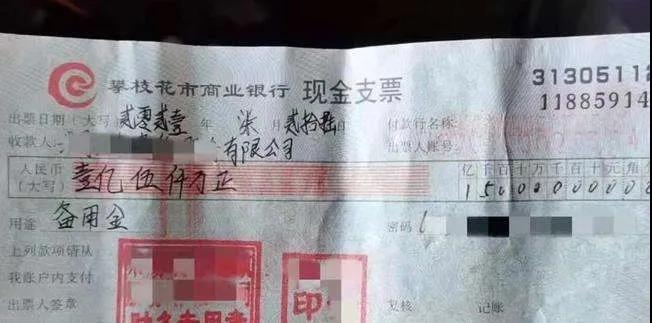 攀枝花市商业银行 现金支票 31305112
11885914
出票日期(大写) 贰零贰壹 年 柒 月 贰拾 付款行名称:
收款人: 有限公司 出票人账号:
人民币(大写) 壹亿伍仟万正 亿千百十万千百十元角
150000000
用途 备用金 密码
上列款项请从
我账户内支付
出票人签章 财务专用章 印 复核 记账